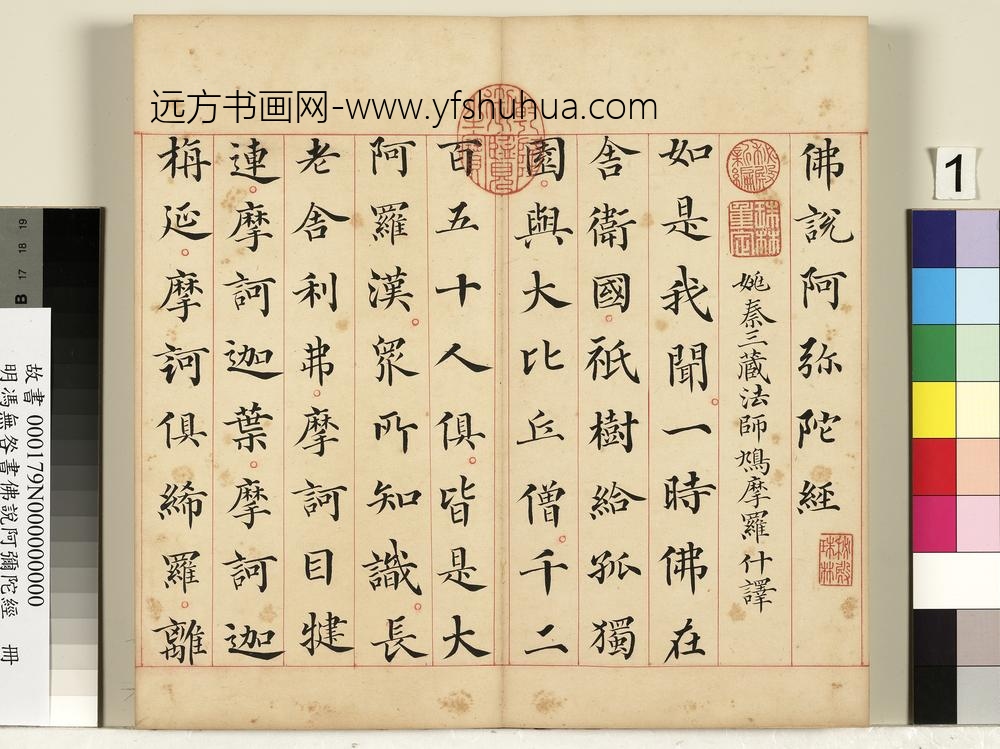 远方书画网-www.yfshuhua.com
佛說阿弥陀經
秘殿珠林
秘殿新編
珠林重定
姚秦三藏法師鳩摩羅什譯
如是我聞。一時佛在
舍衛國。祇樹給孤獨
園。與大比丘僧。千二
百五十人俱。皆是大
阿羅漢。眾所知識。長
老舍利弗。摩訶目犍
連。摩訶迦葉。摩訶迦
栴延。摩訶俱絺羅。離
1
B 17 18 19
故書 000179N000000000
明馮無咎書佛說阿彌陀經 冊